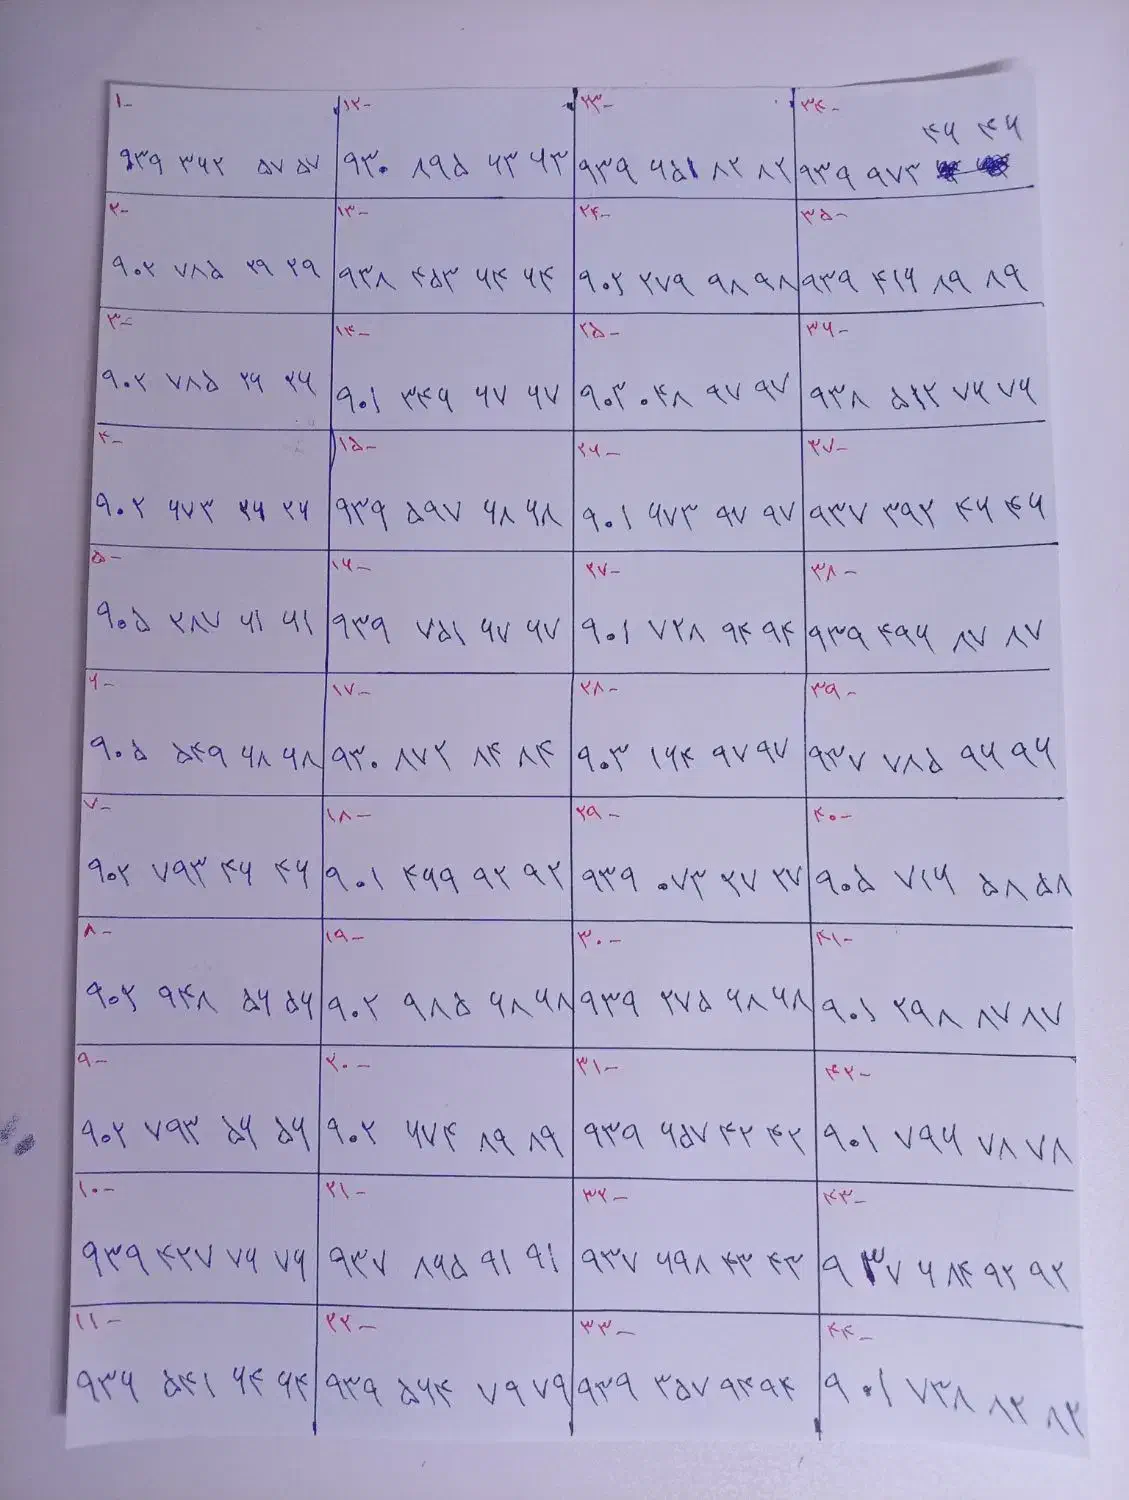 ۱-
۹۳۹ ۳۴۲ ۵۷ ۵۷
۲-
۹۰۲ ۷۸۵ ۲۹ ۲۹
۳-
۹۰۲ ۷۸۵ ۲۶ ۲۶
۴-
۹۰۲ ۶۷۳ ۲۶ ۲۶
۵-
۹۰۵ ۲۸۷ ۶۱ ۶۱
۶-
۹۰۵ ۵۴۹ ۶۸ ۶۸
۷-
۹۰۲ ۷۹۳ ۴۶ ۴۶
۸-
۹۰۲ ۹۴۸ ۵۶ ۵۶
۹-
۹۰۲ ۷۹۳ ۵۶ ۵۶
۱۰-
۹۳۹ ۴۲۷ ۷۶ ۷۶
۱۱-
۹۳۶ ۵۴۱ ۶۴ ۶۴
۱۲-
۹۳۰ ۸۹۵ ۶۳ ۶۳
۱۳-
۹۳۸ ۴۵۳ ۶۴ ۶۴
۱۴-
۹۰۱ ۳۴۹ ۶۷ ۶۷
۱۵-
۹۳۹ ۵۹۷ ۶۸ ۶۸
۱۶-
۹۳۹ ۷۵۱ ۶۷ ۶۷
۱۷-
۹۳۰ ۸۷۲ ۸۴ ۸۴
۱۸-
۹۰۱ ۴۶۹ ۹۲ ۹۲
۱۹-
۹۰۲ ۹۸۵ ۶۸ ۶۸
۲۰-
۹۰۲ ۶۷۴ ۸۹ ۸۹
۲۱-
۹۳۷ ۸۶۵ ۹۱ ۹۱
۲۲-
۹۳۹ ۵۶۴ ۷۹ ۷۹
۲۳-
۹۳۹ ۶۵۱ ۸۲ ۸۲
۲۴-
۹۰۲ ۲۷۹ ۹۸ ۹۸
۲۵-
۹۰۳ ۰۴۸ ۹۷ ۹۷
۲۶-
۹۰۱ ۶۷۳ ۹۷ ۹۷
۲۷-
۹۰۱ ۷۲۸ ۹۴ ۹۴
۲۸-
۹۰۳ ۱۶۴ ۹۷ ۹۷
۲۹-
۹۳۹ ۰۷۳ ۲۷ ۲۷
۳۰-
۹۳۹ ۲۷۵ ۶۸ ۶۸
۳۱-
۹۳۹ ۶۵۷ ۴۲ ۴۲
۳۲-
۹۳۷ ۶۹۸ ۴۳ ۴۳
۳۳-
۹۳۹ ۳۵۷ ۹۴ ۹۴
۳۴-
۴۶ ۴۶
۹۳۹ ۹۷۳
۳۵-
۹۳۹ ۴۱۶ ۸۹ ۸۹
۳۶-
۹۳۸ ۵۱۲ ۷۶ ۷۶
۳۷-
۹۳۷ ۳۹۲ ۴۶ ۴۶
۳۸-
۹۳۹ ۴۹۶ ۸۷ ۸۷
۳۹-
۹۳۷ ۷۸۵ ۹۶ ۹۶
۴۰-
۹۰۵ ۷۱۶ ۵۸ ۵۸
۴۱-
۹۰۱ ۲۹۸ ۸۷ ۸۷
۴۲-
۹۰۱ ۷۹۶ ۷۸ ۷۸
۴۳-
۹۳۷ ۶۸۴ ۹۲ ۹۲
۴۴-
۹۰۱ ۷۳۸ ۸۲ ۸۲